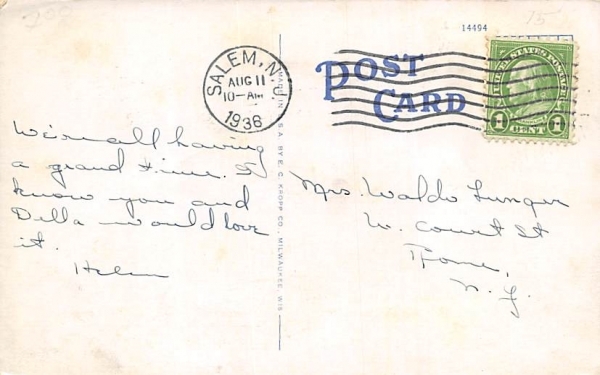 14494
15
SALEM, N.J.
AUG 11
10-AM
1938
POST
CARD
UNITED STATES POSTAGE
1 CENT 1
We're all having
a grand time. I
know you and
Della would love
it.
Helen
MADE IN U.S.A. BY E. C. KROPP CO., MILWAUKEE, WIS.
Mrs. Waldo
W. Court St
Rome,
N.Y.